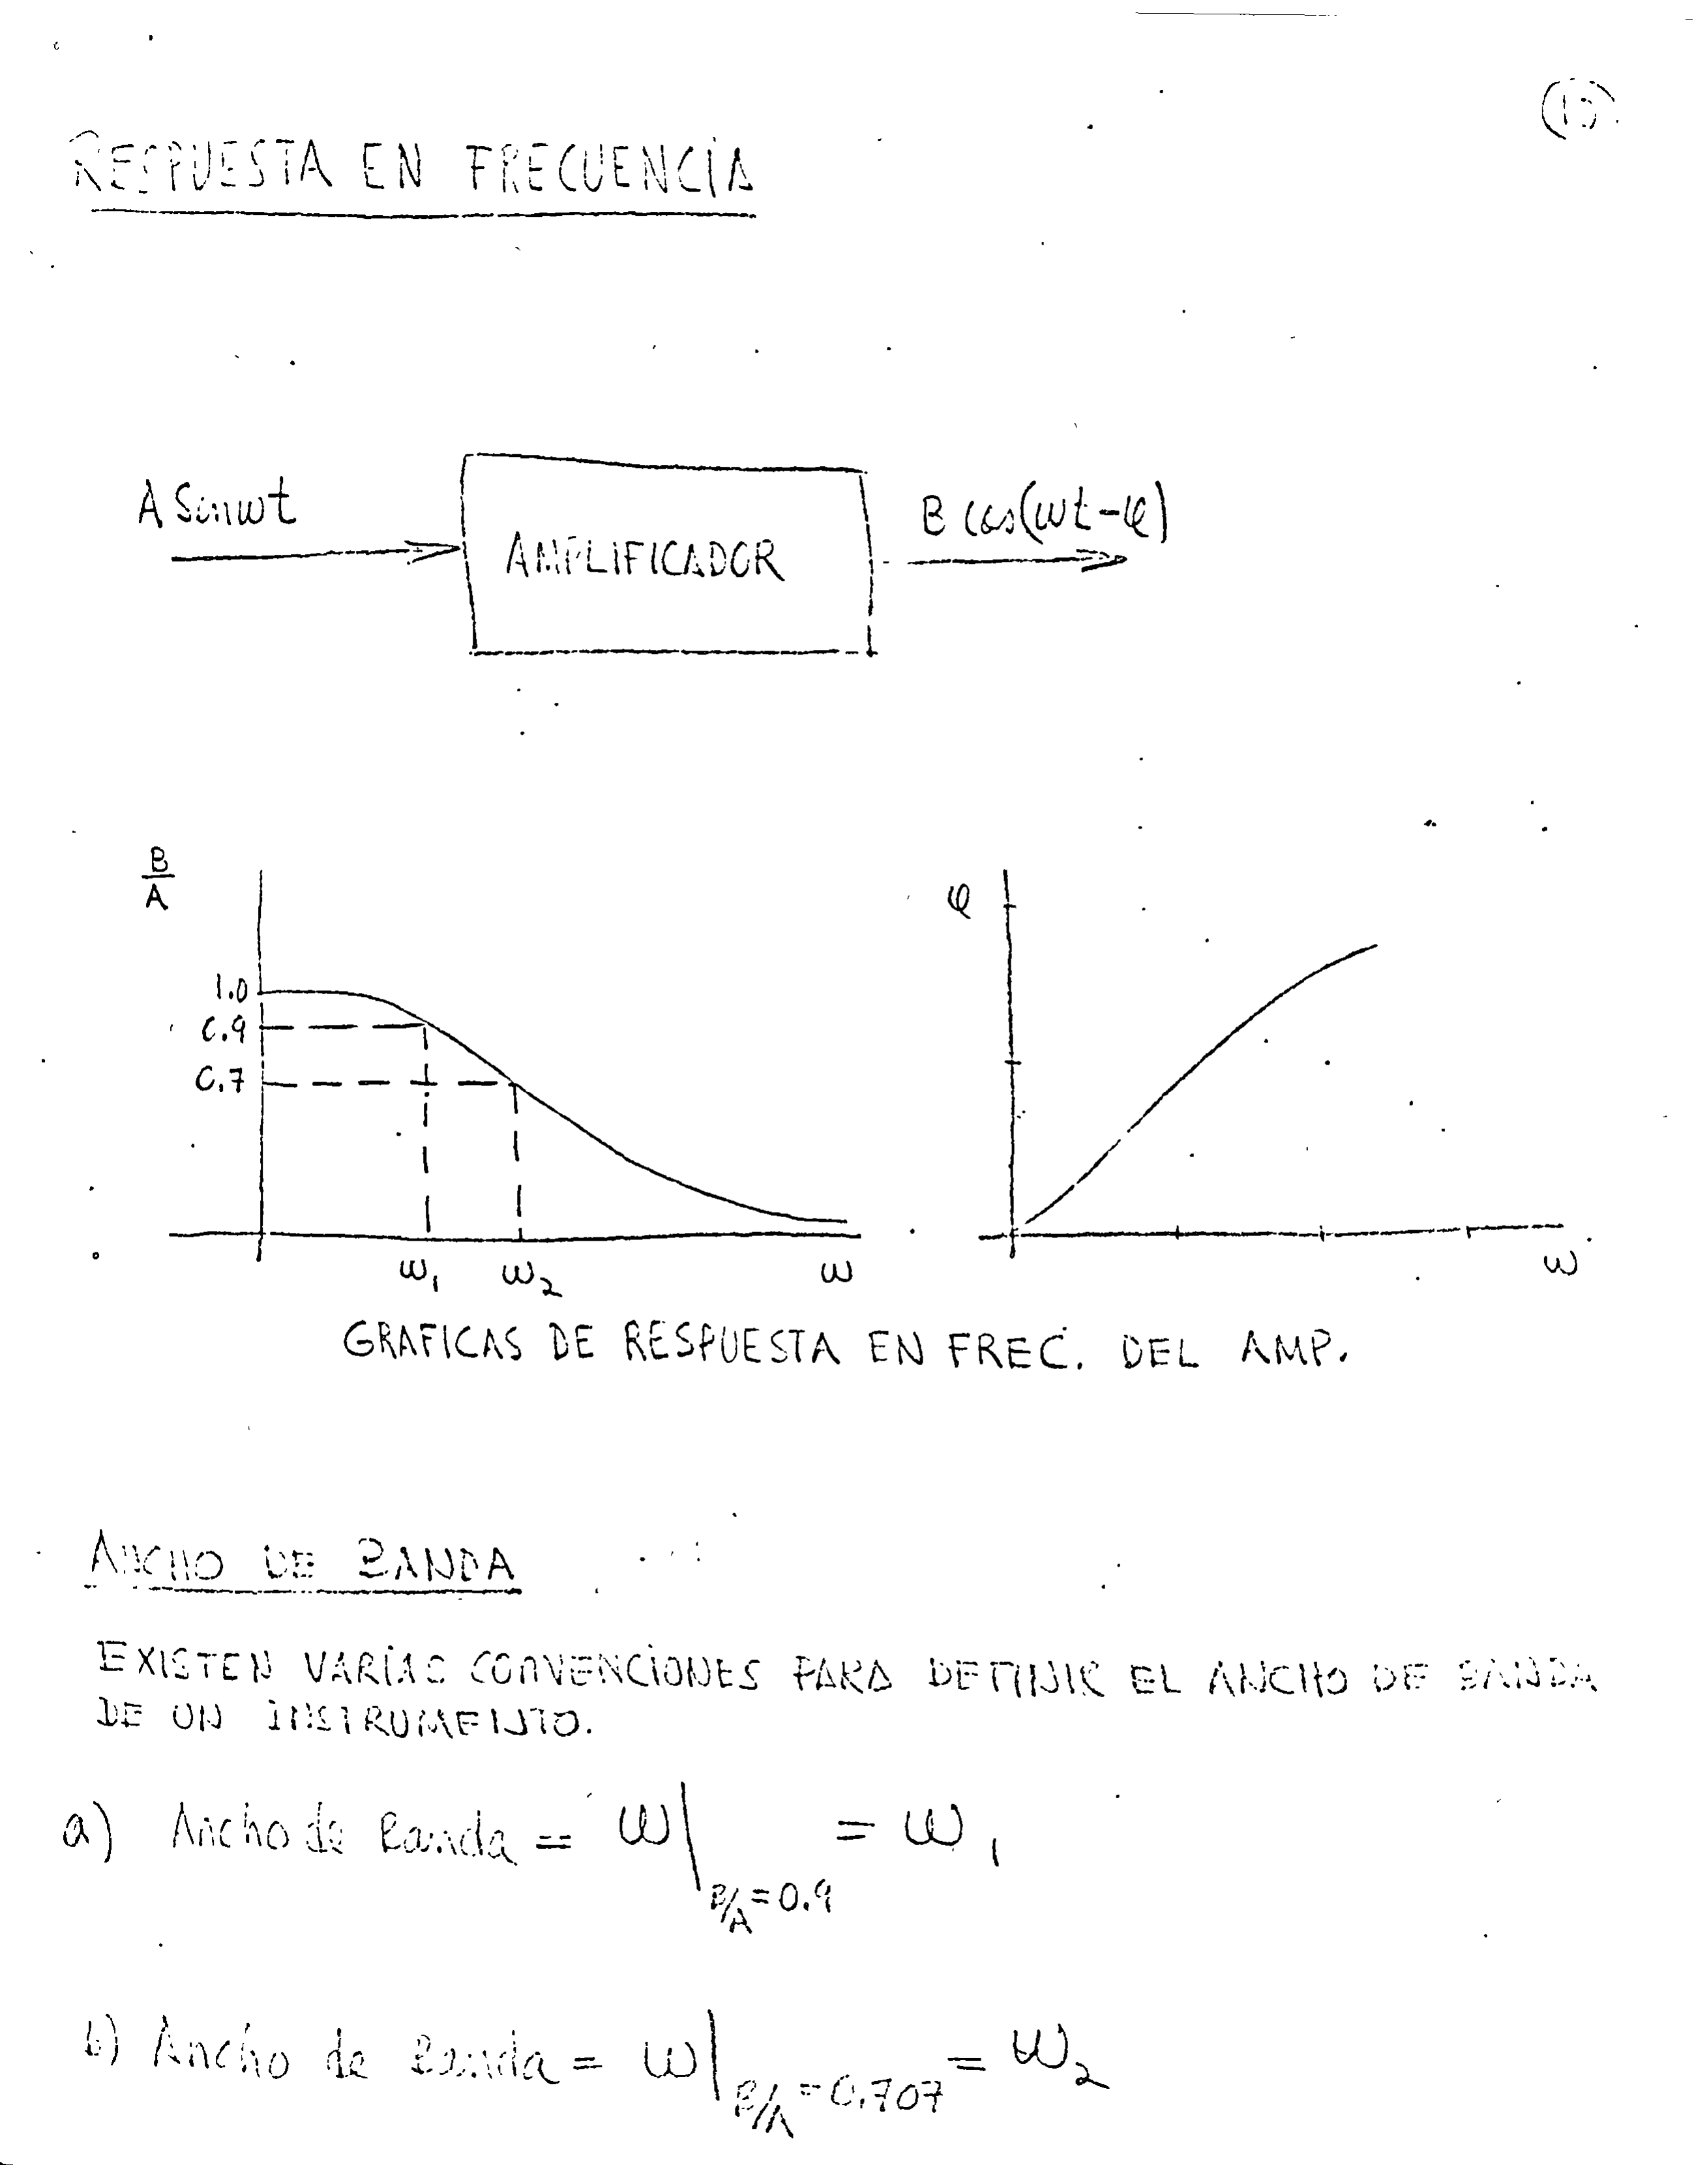 (10)
RESPUESTA EN FRECUENCIA
A Senwt
AMPLIFICADOR
B cos(wt-φ)
B/A
1.0
0.9
0.7
ω1
ω2
ω
φ
ω
GRAFICAS DE RESPUESTA EN FREC. DEL AMP.
ANCHO DE BANDA
EXISTEN VARIAS CONVENCIONES PARA DEFINIR EL ANCHO DE BANDA
DE UN INSTRUMENTO.
a) Ancho de Banda = ω|B/A=0.9 = ω1
b) Ancho de Banda = ω|B/A=0.707 = ω2